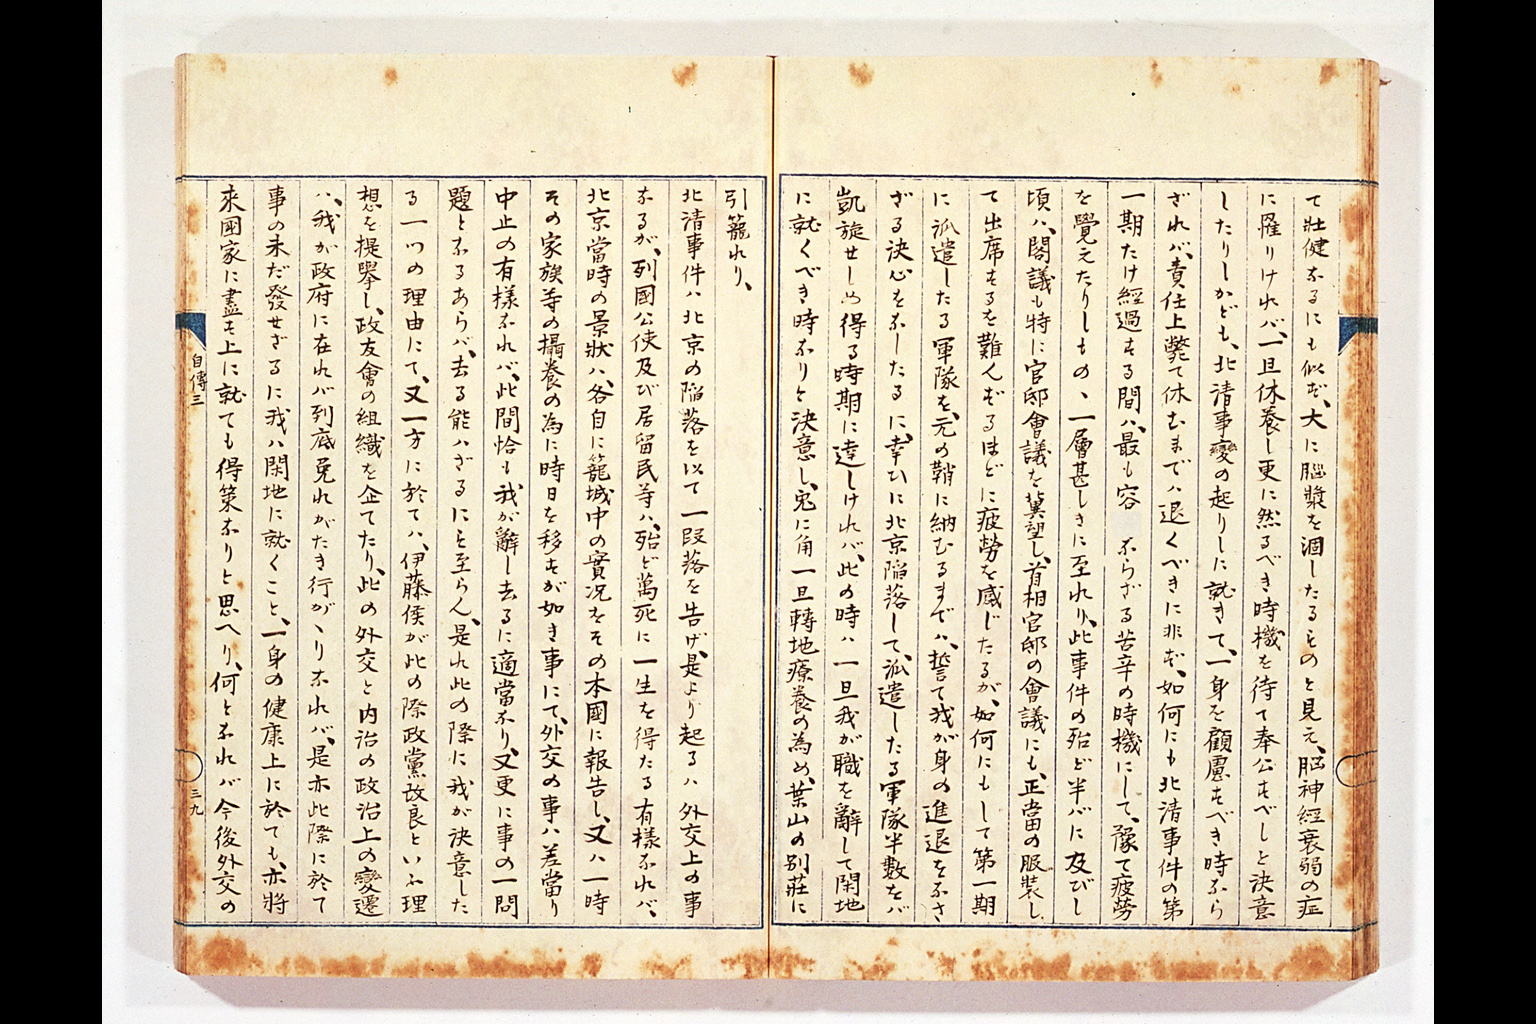 て壮健なるにも似ず、大に脳漿を涸したるものと見え、脳神経衰弱の症
に罹りけれバ、一旦休養し更に然るべき時機を待て奉公すべしと決意
したりしかども、北清事變の起りしに就きて、一身を顧慮すべき時なら
ざれバ、責任上斃て休むまでハ退くべきに非ず、如何にも北清事件の第
一期たけ経過する間ハ、最も容 ならざる苦辛の時機にして、豫て疲勞
を覺えたりしもの、一層甚しきに至れり、此事件の殆ど半バに及びし
頃ハ、閣議も特に官邸會議を冀望し、首相官邸の會議にも、正當の服裝し
て出席するを難んずるほどに疲勞を感じたるが、如何にもして第一期
に派遣したる軍隊を、元の鞘に納むるまでハ、誓て我が身の進退をなさ
ざる決心をなしたるに、幸ひに北京陥落して、派遣したる軍隊半數をバ
凱旋せしめ得る時期に達しけれバ、此の時ハ一旦我が職を辭して閑地
に就くべき時なりと決意し、兎に角一旦轉地療養の為め、葉山の別莊に
引籠れり、
北清事件ハ北京の陥落を以て一段落を告げ、是より起るハ外交上の事
なるが、列國公使及び居留民等ハ、殆ど萬死に一生を得たる有樣なれバ、
北京當時の景狀ハ、各自に籠城中の實況をその本國に報告し、又ハ一時
その家族等の攝養の為に時日を移すが如き事にて、外交の事ハ差當り
中止の有樣なれバ、此間恰も我が辭し去るに適當なり、又更に事の一問
題となるあらバ、去る能ハざるにも至らん、是れ此の際に我が決意した
る一つの理由にて、又一方に於てハ、伊藤侯が此の際政黨改良といふ理
想を提擧し、政友會の組織を企てたり、此の外交と内治の政治上の變遷
ハ、我が政府に在れバ到底免れがたき行がゝりなれバ、是亦此際に於て
事の未だ發せざるに我ハ閑地に就くこと、一身の健康上に於ても、亦將
来國家に盡す上に就ても得策なりと思へり、何となれバ今後外交の
自傳三
三九